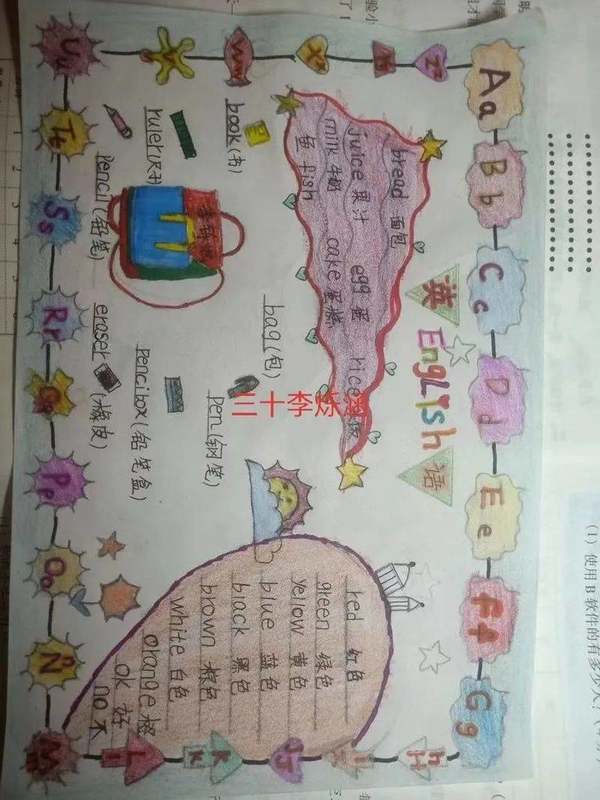 Aa
Bb
Cc
Dd
Ee
Ff
Gg
Hh
Ii
Jj
Kk
Ll
Mm
Nn
Oo
Pp
Rr
Ss
Tt
Uu
英
English
语
bread 面包 egg 蛋 rice
juice 果汁 cake 蛋糕
milk 牛奶
鱼 fish
book(书)
ruler(尺子)
pencil(铅笔)
bag(包)
eraser (橡皮)
pencibox(铅笔盒)
pen(钢笔)
red 红色
green 绿色
yellow 黄色
blue 蓝色
black 黑色
brown 棕色
white 白色
orange 橙
ok 好
no 不
三十李烁涵
(1) 使用 B 软件的有多少人?